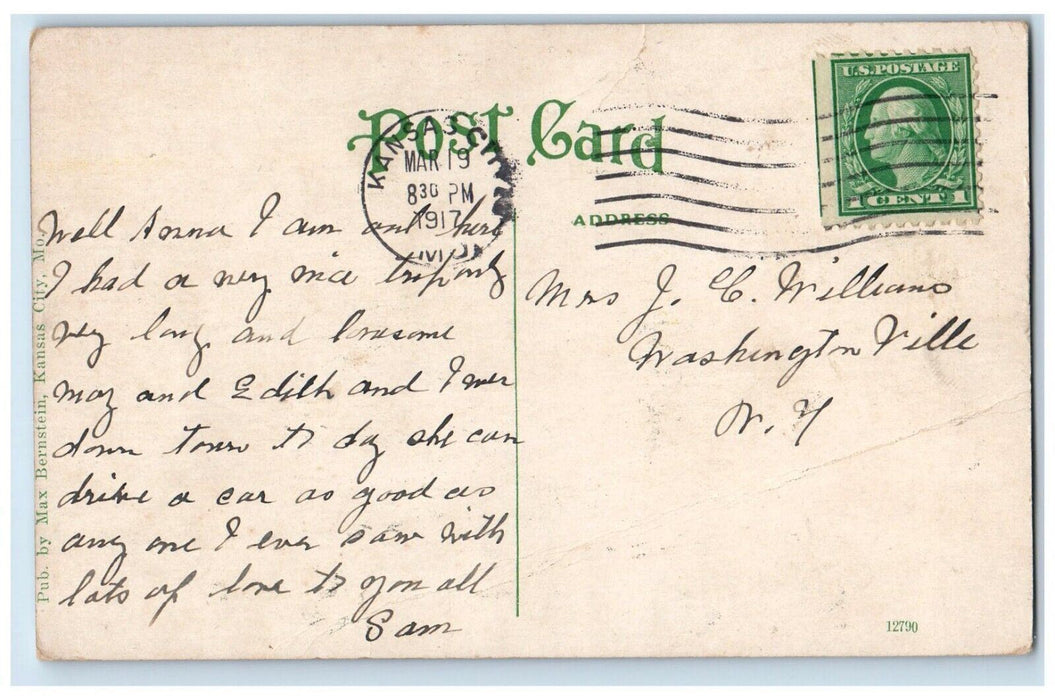 Post Card
U.S. POSTAGE
1 CENT 1
KANSAS CITY
MAR 19
8 30 PM
1917
MO.
ADDRESS
Well Anna I am out here
I had a very nice trip only
very long and lonesome
May and Edith and I wer
down town to day she can
drive a car as good as
any one I ever saw with
lots of love to you all
Sam
Mrs J. C. Williams
Washington Ville
N. Y
Pub. by Max Bernstein, Kansas City, Mo.
12790